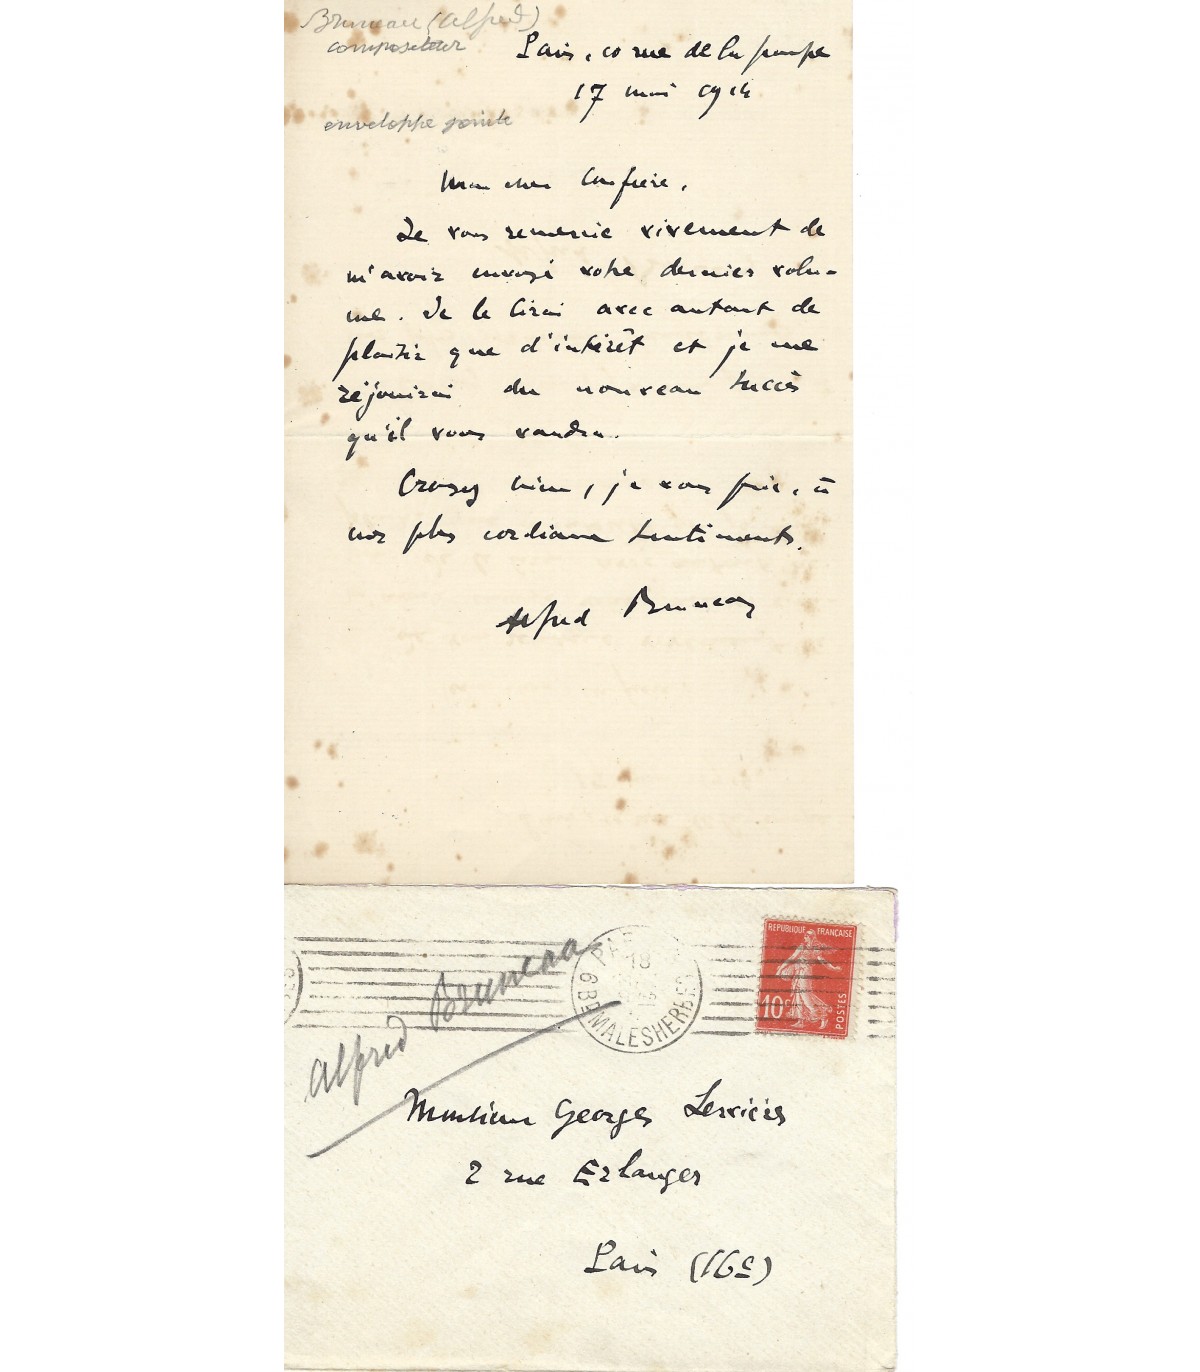 Bruneau (Alfred)
compositeur
Paris, rue de la pompe
17 mai 1914
enveloppe jointe
Mon cher Confrère,
Je vous remercie vivement de
m'avoir envoyé votre dernier volu-
me. Je le lirai avec autant de
plaisir que d'intérêt et je me
réjouirai du nouveau succès
qu'il vous vaudra.
Croyez bien, je vous prie, à
mes plus cordiaux sentiments.
Alfred Bruneau
Alfred Bruneau
18
6 BD MALESHERBES
REPUBLIQUE FRANÇAISE
10c
POSTES
Monsieur Georges
2 rue Erlanger
Paris (16e)